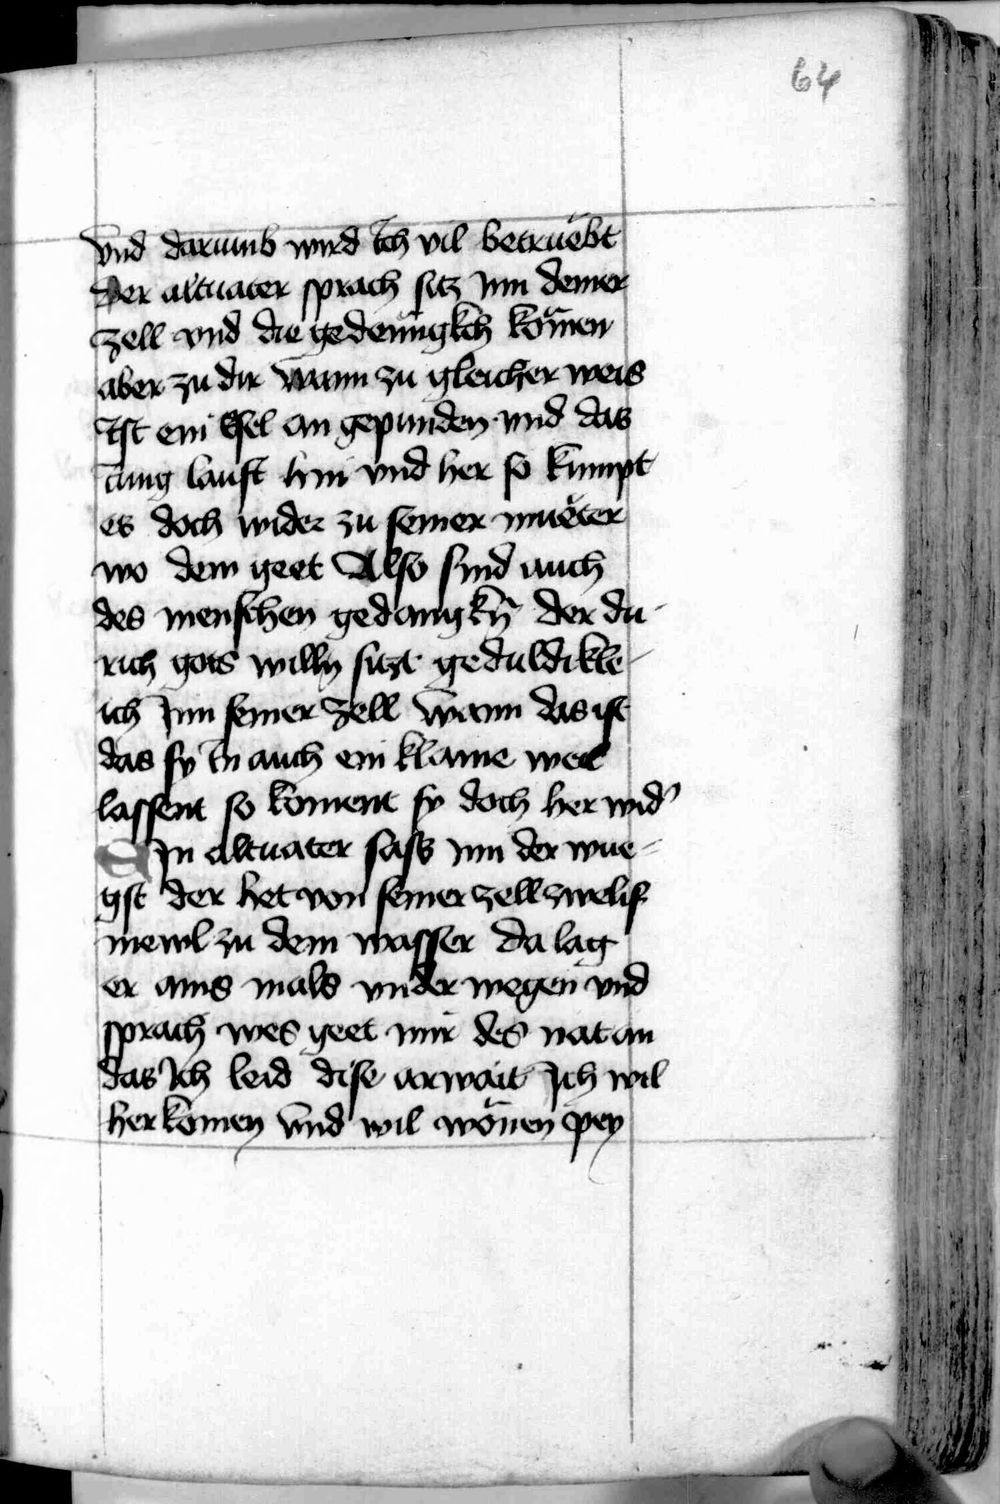 64
vnd darumb wird ich vil betruͤbt
Der altuater sprach sitz inn deiner
zell vnd die gedenngkch koͤmen
aber zu dir wann zu gleicher weis
ist ein Esel an gepunden vnd das
iung lauft hin vnd her so kumpt
es doch wider zu seiner mueter
wo dem geet Also sind auch
des menschen gedangkn̄ der du-
rich gots willn siczt geduldikle-
ich Inn seiner zell wann das ist
das sy in auch ein klaine weil
lassent so koment sy doch her wid'
Ein altuater sass inn der wue-
gst der het von seiner zell zwelif
mewl zu dem wasser da lag
er ains mals vnder wegen vnd
sprach wes geet mir des nat an
das ich leid dise arwait Ich wil
her komen vnd wil wonen pey